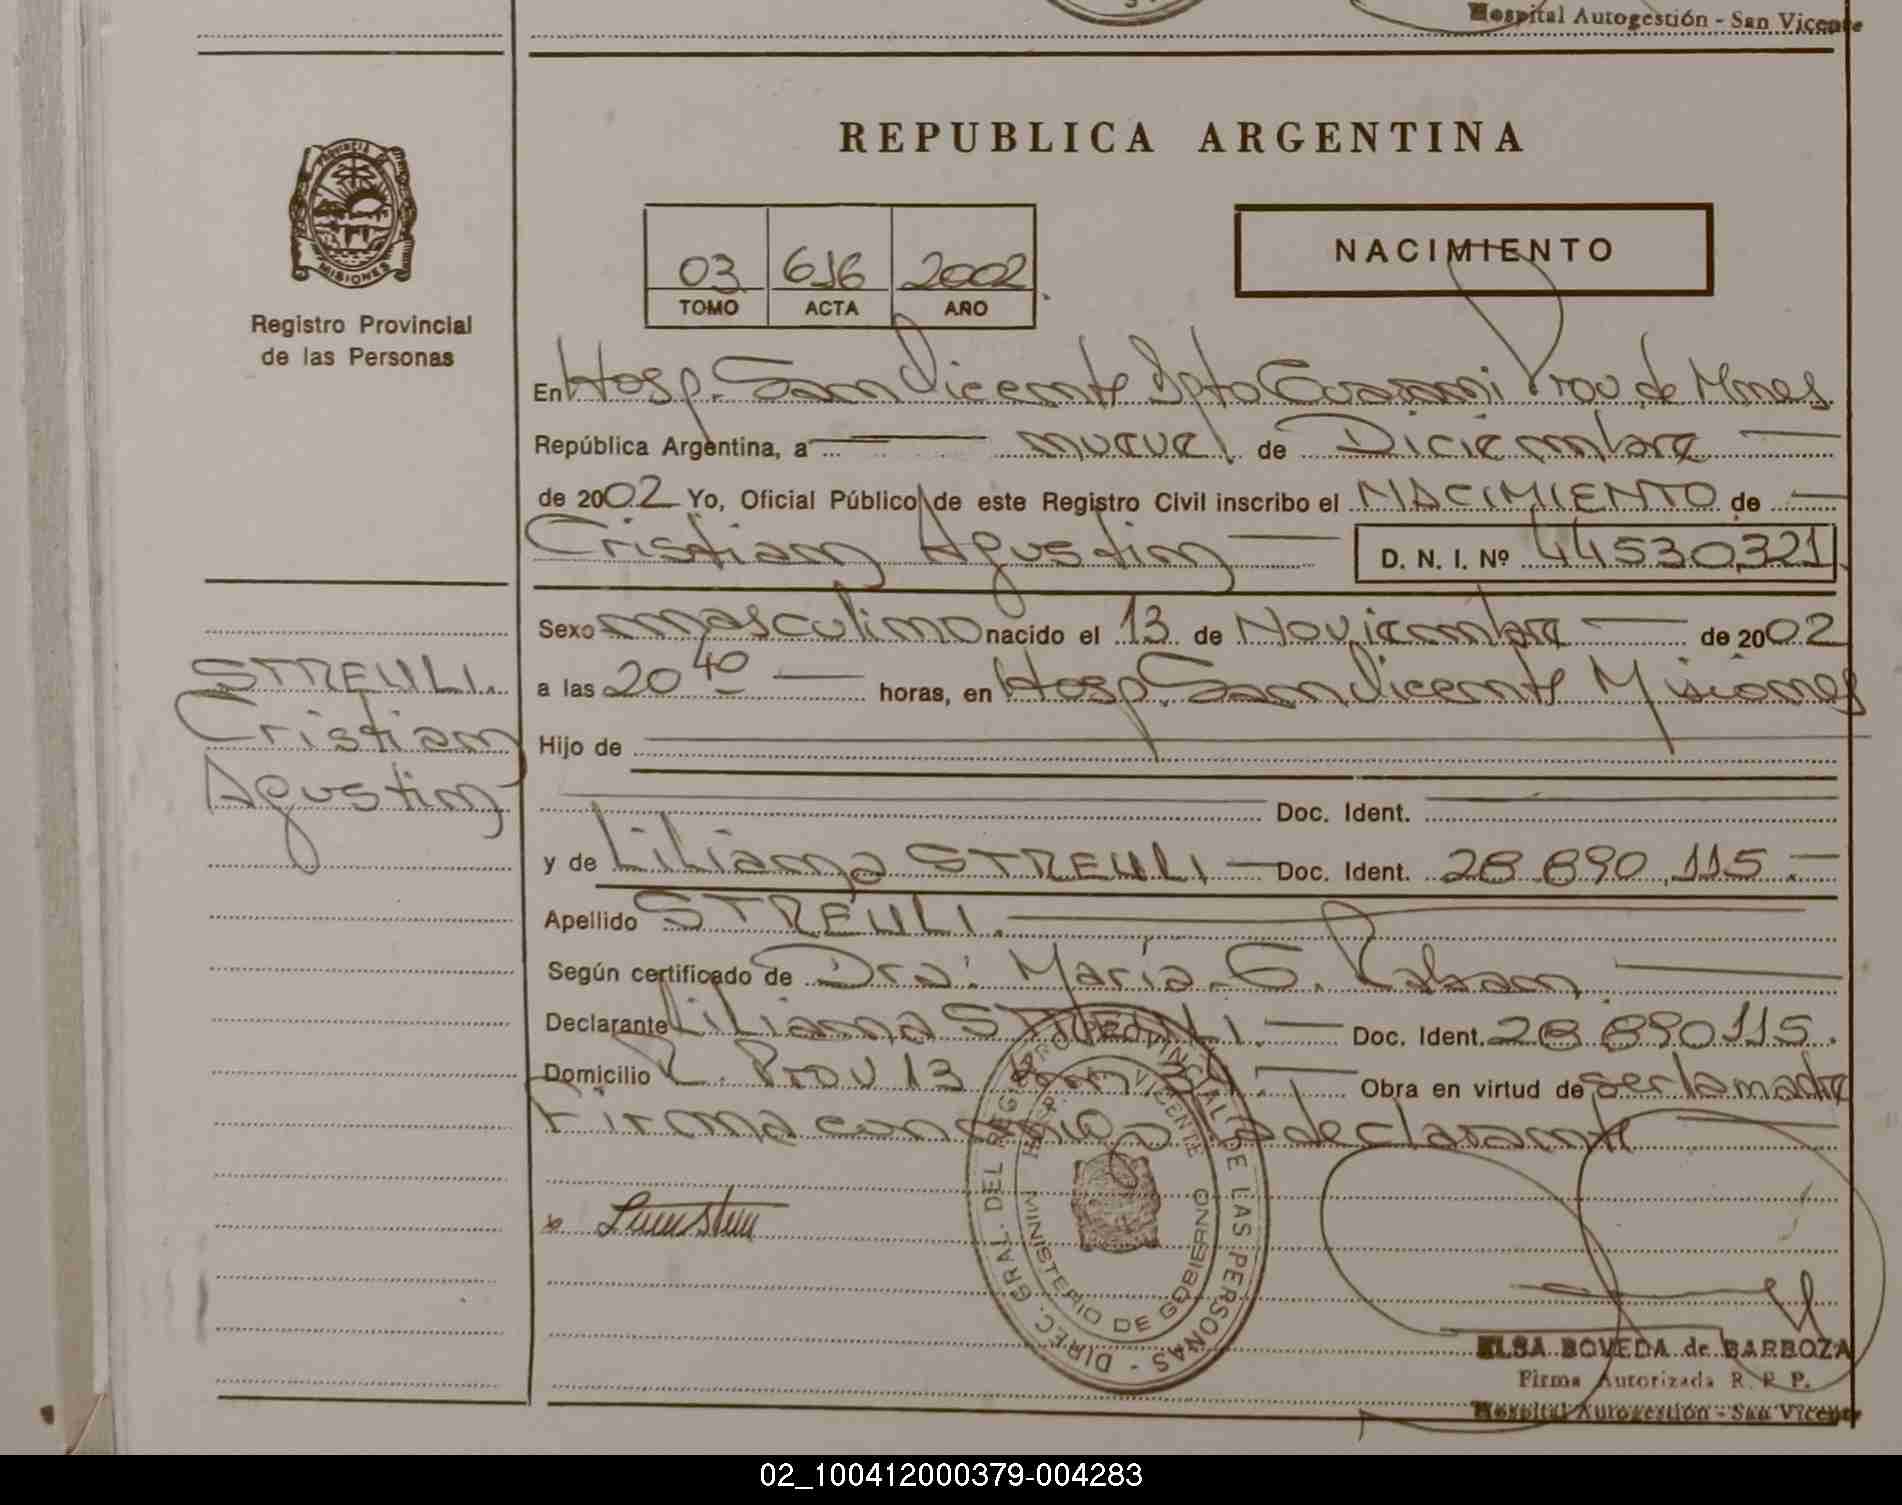 Hospital Autogestión - San Vicente
REPUBLICA ARGENTINA
PROVINCIA DE
MISIONES
Registro Provincial
de las Personas
03 616 2002
TOMO ACTA AÑO
NACIMIENTO
En Hosp. San Vicente Dpto Guaraní Prov de Mnes
República Argentina, a nueve de Diciembre
de 2002 Yo, Oficial Público de este Registro Civil inscribo el NACIMIENTO de
Cristian Agustin D. N. I. Nº 44530321
Sexo masculino nacido el 13 de Noviembre de 2002
a las 20 40 horas, en Hosp. San Vicente Misiones
STREULI.
Cristian
Agustin
Hijo de
Doc. Ident.
y de Liliana STREULI Doc. Ident. 28 890 115.
Apellido STREULI.
Según certificado de Dra: María G.
Declarante Liliana STREULI. Doc. Ident. 28 890 115.
Domicilio R. Prov 13 Km 34. Obra en virtud de ser la madre
Firma conmigo la declarante
DIREC. GRAL. DEL REGISTRO PROVINCIAL DE LAS PERSONAS -
HOSP. SAN VICENTE
MINISTERIO DE GOBIERNO
ELSA BOVEDA de BARBOZA
Firma Autorizada R. P. P.
Hospital Autogestión - San Vicente
02_100412000379-004283